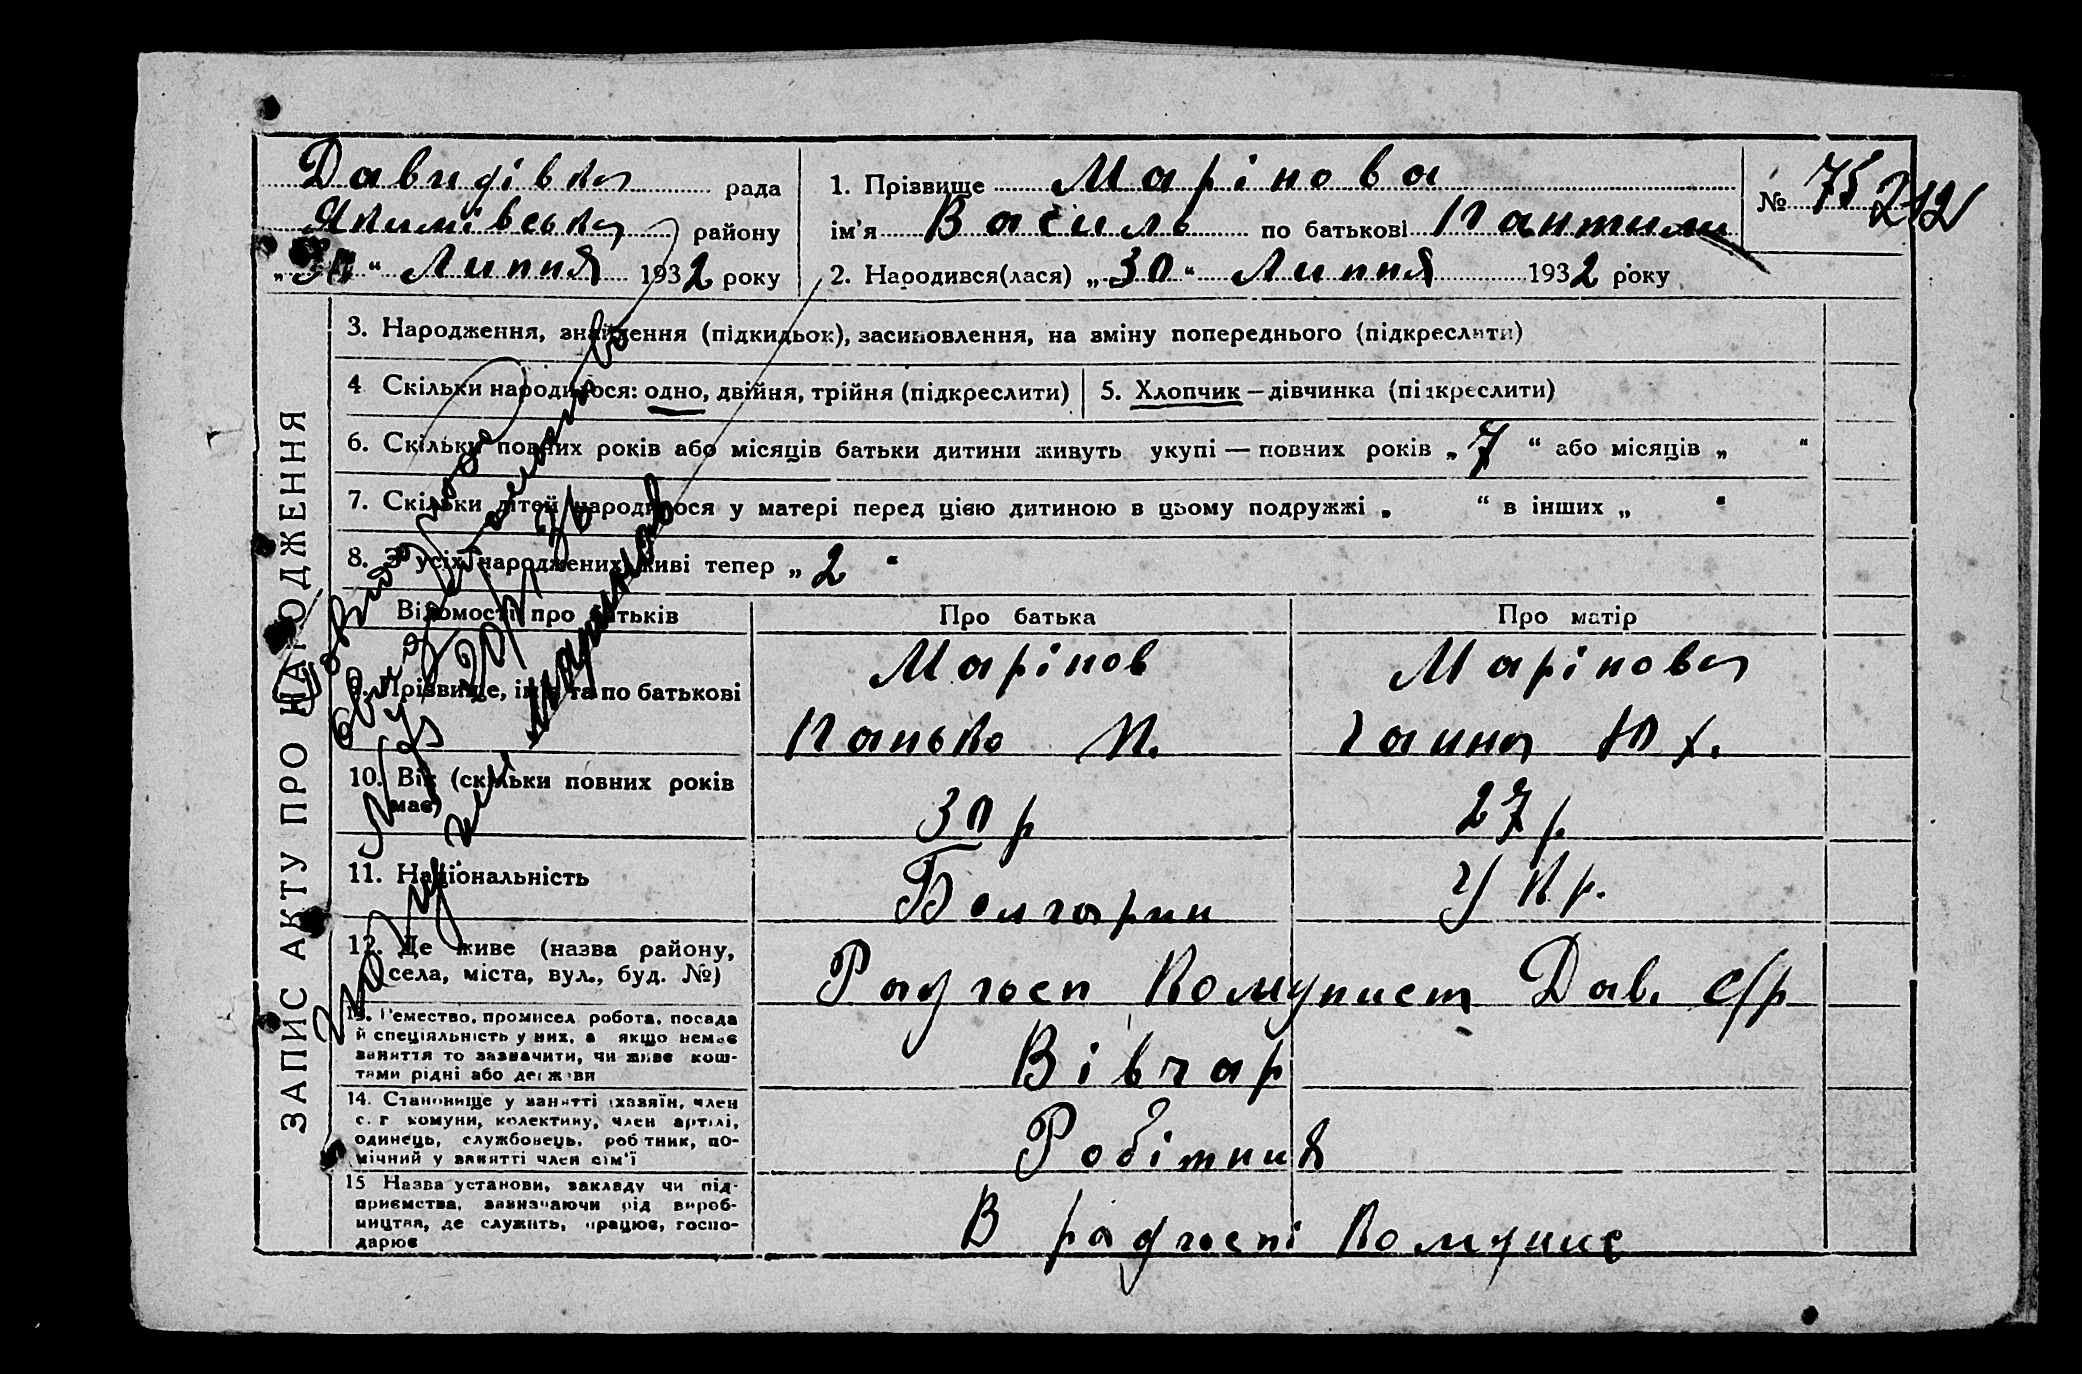 Давидівка рада
Якимівська району
„30“ Липня 1932 року
1. Прізвище Марінова
ім'я Василь по батькові Пантили
№ 75 212
2. Народився(лася) „30“ Липня 1932 року
ЗАПИС АКТУ ПРО НАРОДЖЕННЯ
3. Народження, знайдення (підкидьок), засиновлення, на зміну попереднього (підкреслити)
4 Скільки народилося: одно, двійня, трійня (підкреслити)
5. Хлопчик – дівчинка (підкреслити)
6. Скільки повних років або місяців батьки дитини живуть укупі — повних років „7“ або місяців „ “
7. Скільки дітей народилося у матері перед цією дитиною в цьому подружжі „ “ в інших „ “
8. З усіх народжених живі тепер „2“
Відомості про батьків Про батька Про матір
9. Прізвище, ім'я та по батькові
Марінов Марінова
Панько П. Ганна Ю х.
10. Вік (скільки повних років має)
30 р 27 р.
11. Національність
Болгарин Укр.
12. Де живе (назва району,
села, міста, вул., буд. №)
Радгосп Комуніст Дав. с/р
13. Ремество, промисел робота, посада
й спеціяльність у них, а якщо немає
заняття то зазначити, чи живе кош-
тами рідні або держави
Вівчар
14. Становище у занятті хазяїн, член
с. г комуни, колективу, член артілі,
одинець, службовець, робітник, по-
мічний у занятті член сім'ї
Робітник
15 Назва установи, закладу чи під-
приємства, зазначаючи рід вироб-
ництва, де служить, працює, госпо-
дарює
В радгоспі Комуніс